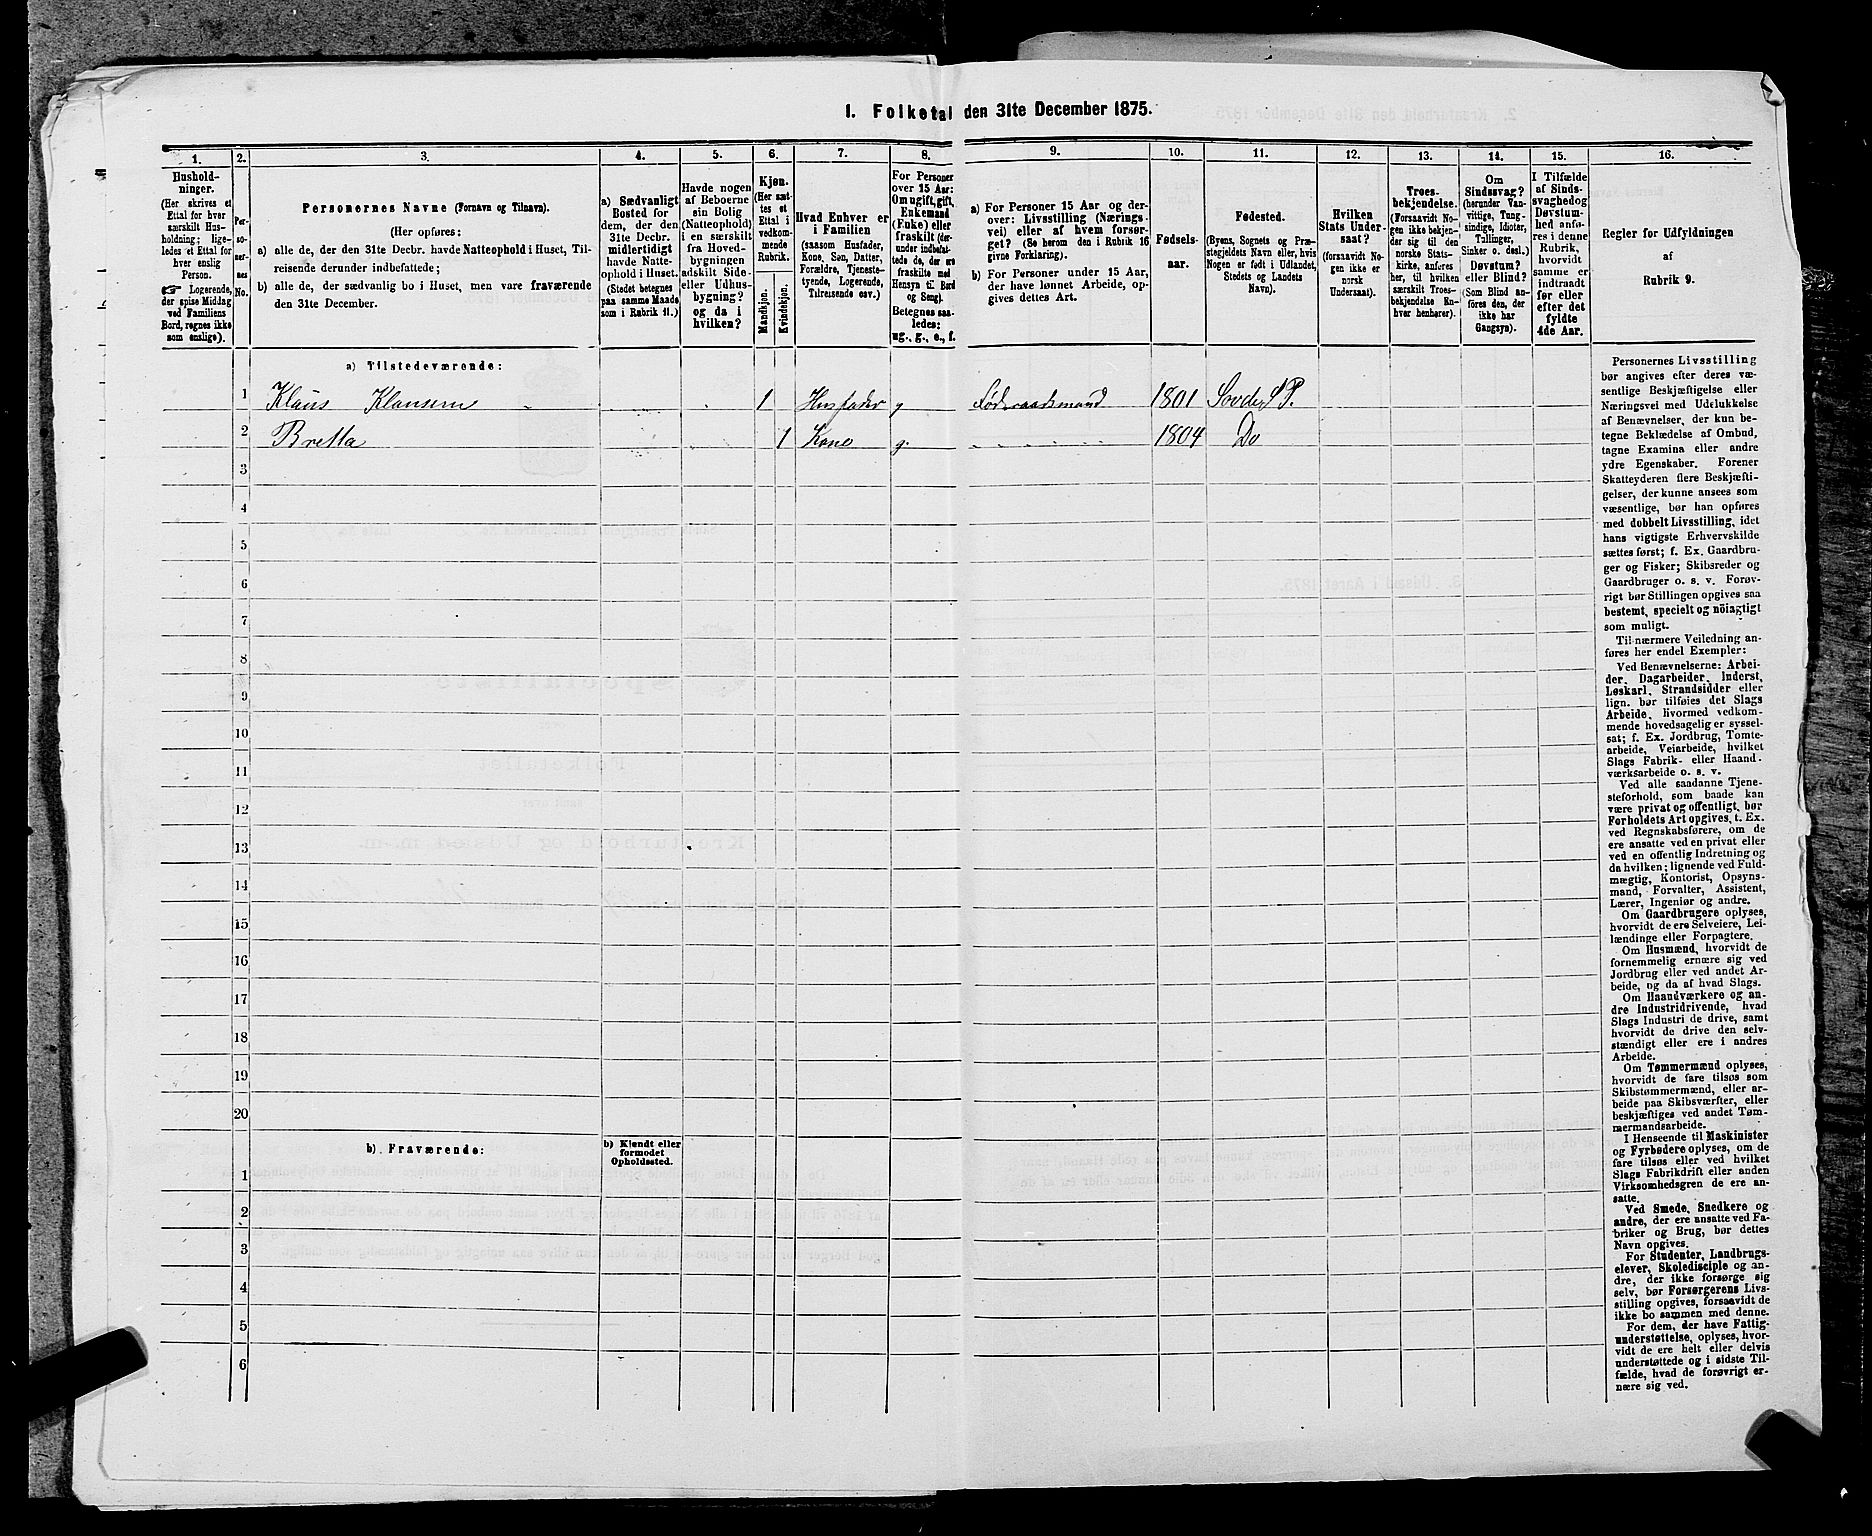 1. Folketal den 31te December 1875.
1. 2. 3. 4. 5. 6. 7. 8. 9. 10. 11. 12. 13. 14. 15. 16.
Hushold-
ninger.
(Her skrives et
Ettal for hver
særskilt Hus-
holdning; lige-
ledes et Ettal for
hver enslig
Person.
☞ Logerende,
der spise Middag
ved Familiens
Bord, regnes ikke
som enslige).
Per-
so-
ner-
nes
No.
Personernes Navne (Fornavn og Tilnavn).
(Her opføres:
a) alle de, der den 31te Decbr. havde Natteophold i Huset, Til-
reisende derunder indbefattede;
b) alle de, der sædvanlig bo i Huset, men vare fraværende
den 31te December.
a) Sædvanligt
Bosted for
dem, der den
31te Decbr.
midlertidigt
havde Natte-
ophold i Huset.
(Stedet betegnes
paa samme Maade
som i Rubrik 11.)
Havde nogen
af Beboerne
sin Bolig
(Natteophold)
i en særskilt
fra Hoved-
bygningen
adskilt Side-
eller Udhus-
bygning?
og da i
hvilken?
Kjøn.
(Her sæt-
tes et
Ettal i
vedkom-
mende
Rubrik.
Mandkjøn.
Kvindekjøn.
Hvad Enhver er
i Familien
(saasom Husfader,
Kone, Søn, Datter,
Forældre, Tjeneste-
tyende, Logerende,
Tilreisende osv.)
For Personer
over 15 Aar:
Om ugift, gift,
Enkemand
(Enke) eller
fraskilt (der-
under indbefat-
tede de, som ere
fraskilte med
Hensyn til Bord
og Seng).
Betegnes saa-
ledes:
ug., g., e., f.
a) For Personer 15 Aar og der-
over: Livsstilling (Nærings-
vei) eller af hvem forsør-
get? (Se herom den i Rubrik 16
givne Forklaring).
b) For Personer under 15 Aar,
der have lønnet Arbeide, op-
gives dettes Art.
Fødsels-
aar.
Fødested.
(Byens, Sognets og Præ-
stegjeldets Navn eller, hvis
Nogen er født i Udlandet,
Stedets og Landets
Navn).
Hvilken
Stats Under-
saat?
(forsaavidt No-
gen ikke er
norsk
Undersaat).
Troes-
bekjendelse.
(Forsaavidt No-
gen ikke bekjen-
der sig til den
norske Stats-
kirke, anføres
her, til hvilken
særskilt Troes-
bekjendelse En-
hver henhører).
Om
Sindssvag?
(herunder Van-
vittige, Tung-
sindige, Idioter,
Tullinger,
Sinker o. desl.)
Døvstum?
eller Blind?
(Som Blind an-
føres den, der
ikke har
Gangsyn).
I Tilfælde
af Sinds-
svaghed og
Døvstum-
hed anfø-
res i denne
Rubrik,
hvorvidt
samme er
indtraadt
før eller
efter det
fyldte
4de Aar.
Regler for Udfyldningen
af
Rubrik 9.
a) Tilstedeværende:
1 Klaus Klausen 1 Husfader g Føderaadsmand 1801 Sovde S P.
2 Bretta 1 Kone g. 1804 Do
3
4
5
6
7
8
9
10
11
12
13
14
15
16
17
18
19
20
b) Fraværende:
b) Kjendt eller
formodet
Opholdssted.
1
2
3
4
5
6
Personernes Livsstilling
bør angives efter deres væ-
sentlige Beskjæftigelse eller
Næringsvei med Udelukkelse
af Benævnelser, der kun be-
tegne Beklædelse af Ombud,
tagne Examina eller andre
ydre Egenskaber. Forener
Skatteyderen flere Beskjæfti-
gelser, der kunne ansees som
væsentlige, bør han opføres
med dobbelt Livsstilling, idet
hans vigtigste Erhvervskilde
sættes først; f. Ex. Gaardbru-
ger og Fisker; Skibsreder og
Gaardbruger o. s. v. Forøv-
rigt bør Stillingen opgives saa
bestemt, specielt og nöiagtigt
som muligt.
Til nærmere Veiledning an-
føres her endel Exempler:
Ved Benævnelserne: Arbei-
der, Dagarbeider, Inderst,
Løskarl, Strandsidder eller
lign. bør tilføies det Slags
Arbeide, hvormed vedkom-
mende hovedsagelig er syssel-
sat; f. Ex. Jordbrug, Tomte-
arbeide, Veiarbeide, hvilket
Slags Fabrik- eller Haand-
værksarbeide o. s. v.
Ved alle saadanne Tjene-
steforhold, som baade kan
være privat og offentligt, bør
Forholdets Art opgives, t. Ex.
ved Regnskabsførere, om de
ere ansatte ved en privat eller
ved en offentlig Indretning og
da hvilken; lignende ved Fuld-
mægtig, Kontorist, Opsyns-
mand, Forvalter, Assistent,
Lærer, Ingeniør og andre.
Om Gaardbrugere oplyses,
hvorvidt de ere Selveiere, Lei-
lændinge eller Forpagtere.
Om Husmænd, hvorvidt de
fornemmelig ernære sig ved
Jordbrug eller ved andet Ar-
beide, og da af hvad Slags.
Om Haandværkere og an-
dre Industridrivende, hvad
Slags Industri de drive, samt
hvorvidt de drive den selv-
stændigt eller ere i andres
Arbeide.
Om Tømmermænd oplyses,
hvorvidt de fare tilsøs som
Skibstømmermænd, eller ar-
beide paa Skibsværfter, eller
beskjæftiges ved andet Tøm-
mermandsarbeide.
I Henseende til Maskinister
og Fyrbødere oplyses, om de
fare tilsøs eller ved hvilket
Slags Fabrikdrift eller anden
Virksomhedsgren de ere an-
satte.
Ved Smede, Snedkere og
andre, der ere ansatte ved Fa-
briker og Brug, bør dettes
Navn opgives.
For Studenter, Landbrugs-
elever, Skoledisciple og an-
dre, der ikke forsørge sig
selv, bør Forsørgerens Livs-
stilling opgives, forsaavidt de
ikke bo sammen med denne.
For dem, der have Fattig-
understøttelse, oplyses, hvor-
vidt de ere helt eller delvis
understøttede og i sidste Til-
fælde, hvad de forøvrigt er-
nære sig ved.